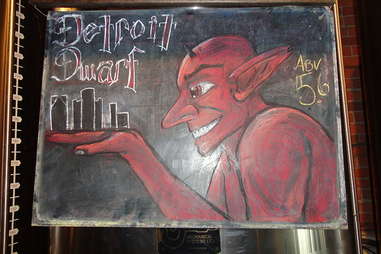 Detroit
Dwarf
ABV
5.6